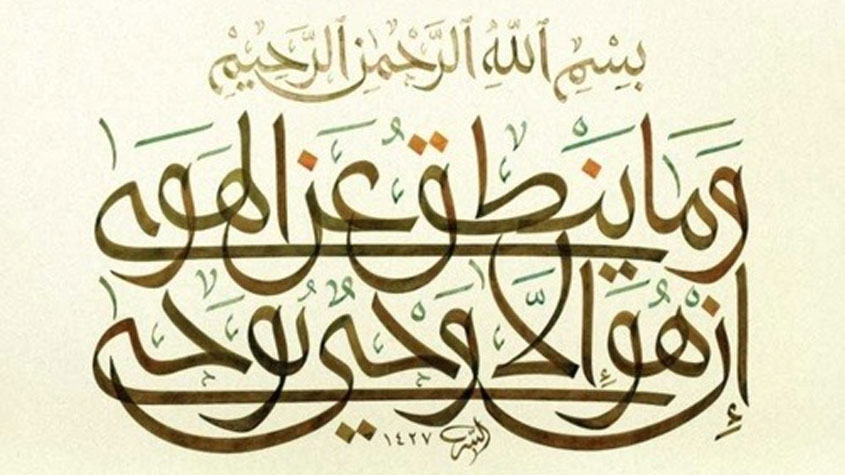 بِسْمِ ٱللَّهِ ٱلرَّحْمَٰنِ ٱلرَّحِيمِ
وَمَا يَنطِقُ عَنِ الْهَوَىٰ
إِنْ هُوَ إِلَّا وَحْيٌ يُوحَىٰ
١٤٢٧